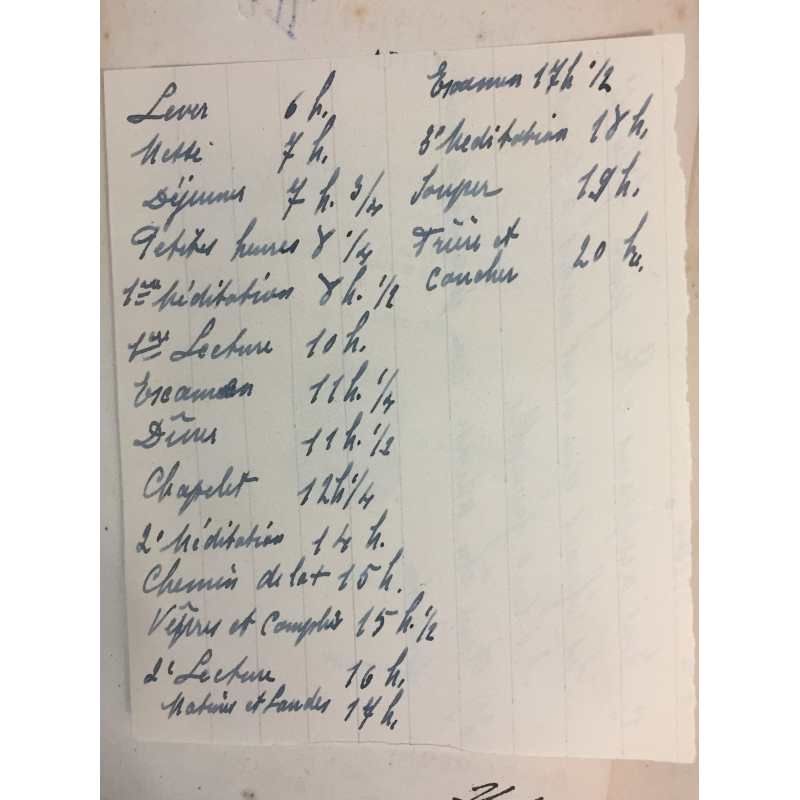 Lever 6 h.
Messe 7 h.
Déjeuner 7 h. 3/4
Petites heures 8 1/4
1ère Méditation 8 h. 1/2
1ère Lecture 10 h.
Examen 11 h. 1/4
Dîner 11 h. 1/2
Chapelet 12 h 1/4
2e Méditation 14 h.
Chemin de la + 15 h.
Vêpres et Complies 15 h. 1/2
2e Lecture 16 h.
Matines et Laudes 17 h.
Examen 17 h 1/2
3e Méditation 18 h.
Souper 19 h.
Prière et 20 h.
coucher